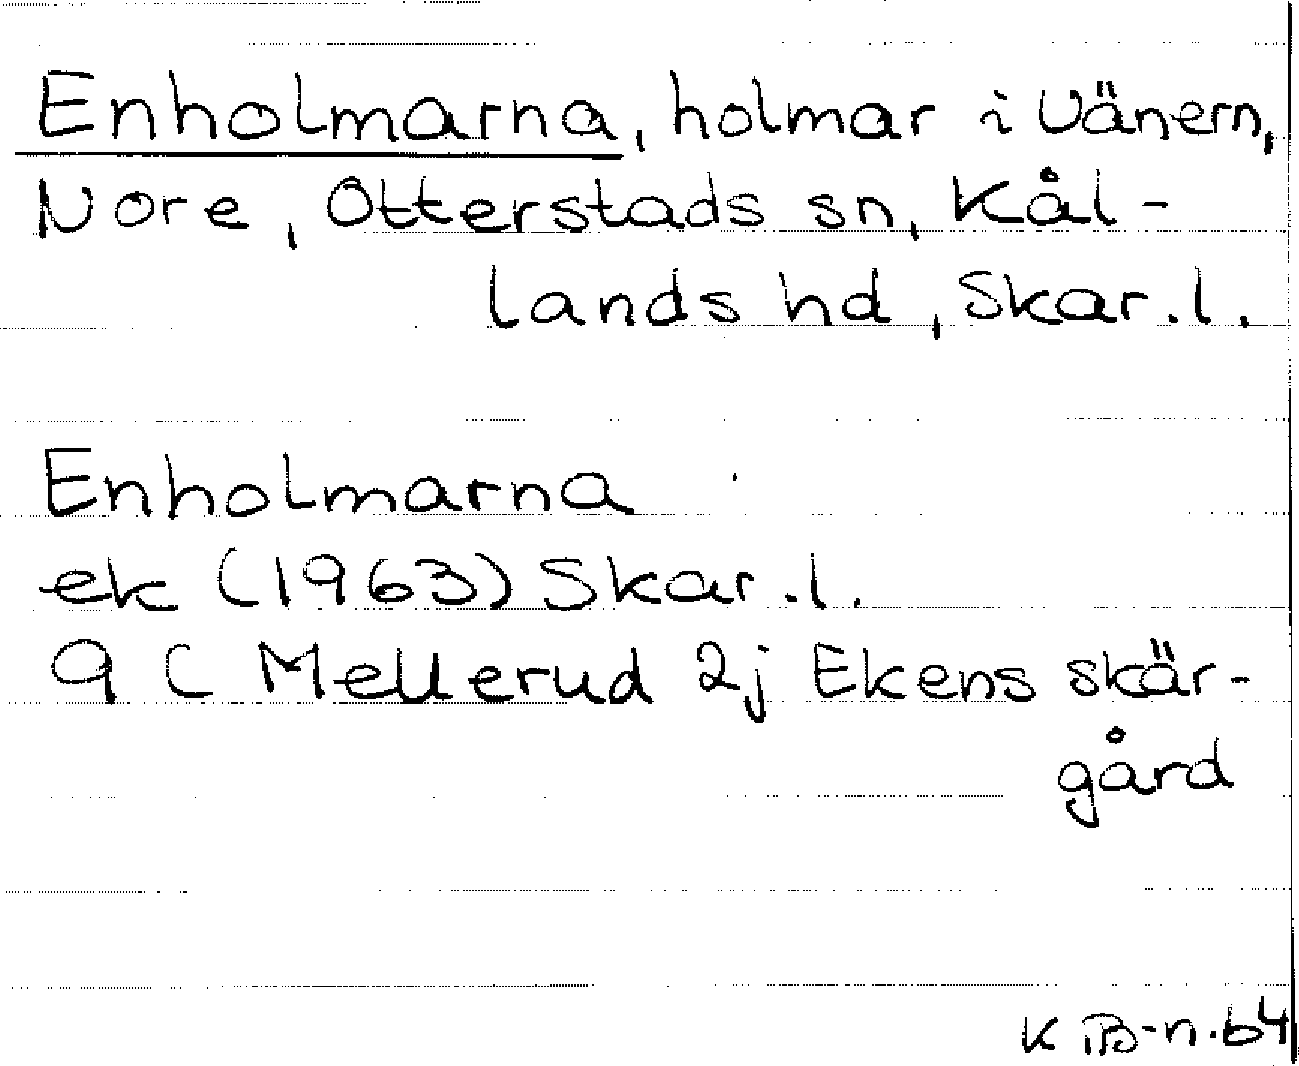 Enholmarna, holmar i Vänern,
Nore, Otterstads sn, Kål-
lands hd, Skar.l.
Enholmarna
ek (1963) Skar.l.
9 C Mellerud 2j Ekens skär-
gård
K B-n.64